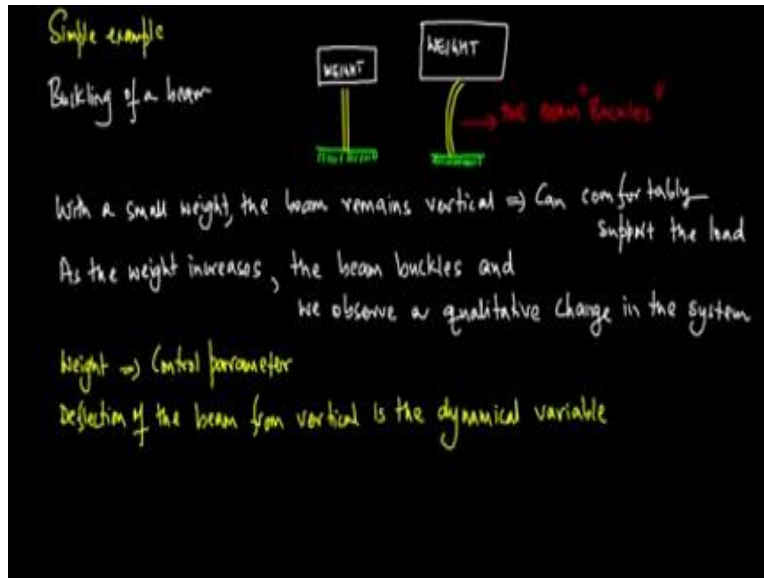 Simple example
Buckling of a beam
WEIGHT
WEIGHT
→ the beam "Buckles"
With a small weight, the beam remains vertical ⇒ Can comfortably
support the load
As the weight increases, the beam buckles and
we observe a qualitative change in the system
Weight ⇒ Control parameter
Deflection of the beam from vertical is the dynamical variable